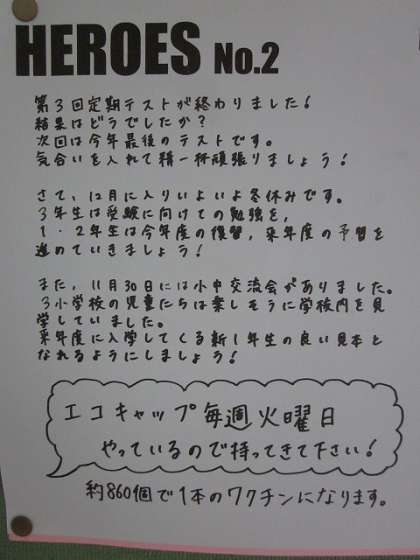 HEROES No.2
第3回定期テストが終わりました!
結果はどうでしたか?
次回は今年最後のテストです。
気合いを入れて精一杯頑張りましょう!
さて、12月に入りいよいよ冬休みです。
3年生は受験に向けての勉強を、
1・2年生は今年度の復習、来年度の予習を
進めていきましょう!
また、11月30日には小中交流会がありました。
3小学校の児童たちは楽しそうに学校内を見
学していました。
来年度に入学してくる新1年生の良い見本と
なれるようにしましょう!
エコキャップ毎週火曜日
やっているので持ってきて下さい!
約860個で1本のワクチンになります。